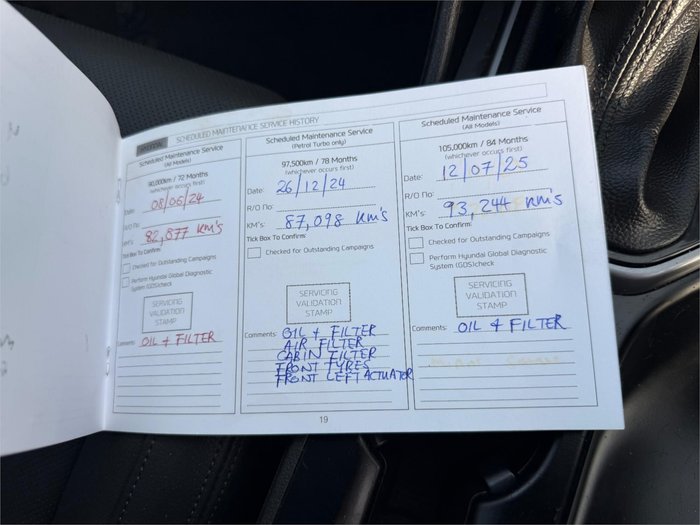 SCHEDULED MAINTENANCE SERVICE HISTORY
Scheduled Maintenance Service
(All Models)
90,000km / 72 Months
(whichever occurs first)
Date: 08/06/24
R/O No:
KM's: 82,877 KM's
Tick Box To Confirm:
Checked for Outstanding Campaigns
Perform Hyundai Global Diagnostic
System (GDS)check
SERVICING
VALIDATION
STAMP
Comments: OIL + FILTER
Scheduled Maintenance Service
(Petrol Turbo only)
97,500km / 78 Months
(whichever occurs first)
Date: 26/12/24
R/O No:
KM's: 87,098 KM's
Tick Box To Confirm:
Checked for Outstanding Campaigns
SERVICING
VALIDATION
STAMP
Comments: OIL + FILTER
AIR FILTER
CABIN FILTER
FRONT TYRES
FRONT LEFT ACTUATOR
Scheduled Maintenance Service
(All Models)
105,000km / 84 Months
(whichever occurs first)
Date: 12/07/25
R/O No:
KM's: 93,244 KM's
Tick Box To Confirm:
Checked for Outstanding Campaigns
Perform Hyundai Global Diagnostic
System (GDS)check
SERVICING
VALIDATION
STAMP
Comments: OIL + FILTER
19